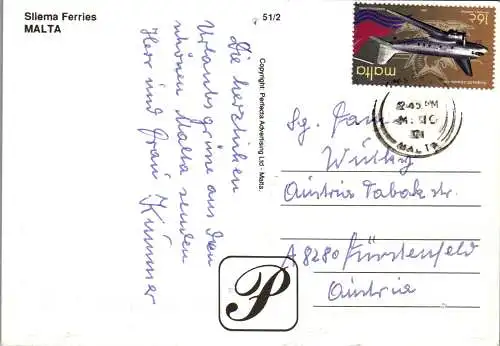 Sliema Ferries
MALTA
51/2
Copyright: Perfecta Advertising Ltd - Malta.
Die herzlichen
Urlaubsgrüße aus dem
schönen Malta senden
Herr und Frau Kummer
16c
malta
2 45 PM
MALTA
Sg. Fam
Austria Tabak str.
A 8280 Fürstenfeld
Austria
P